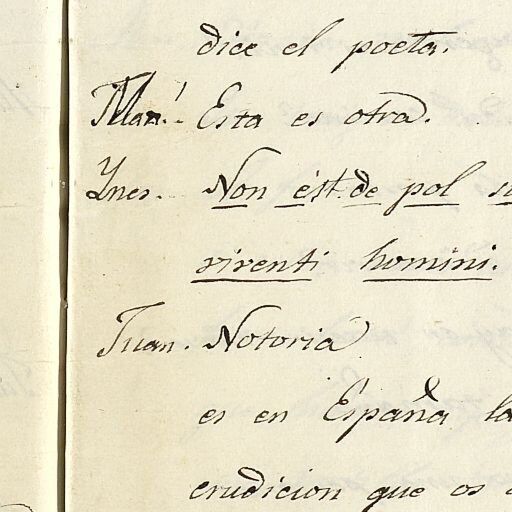 dice el poeta.
Man.! Esta es otra.
Ynes. Non est de pol
virenti homini.
Juan. Notoria
es en España la
erudicion que os